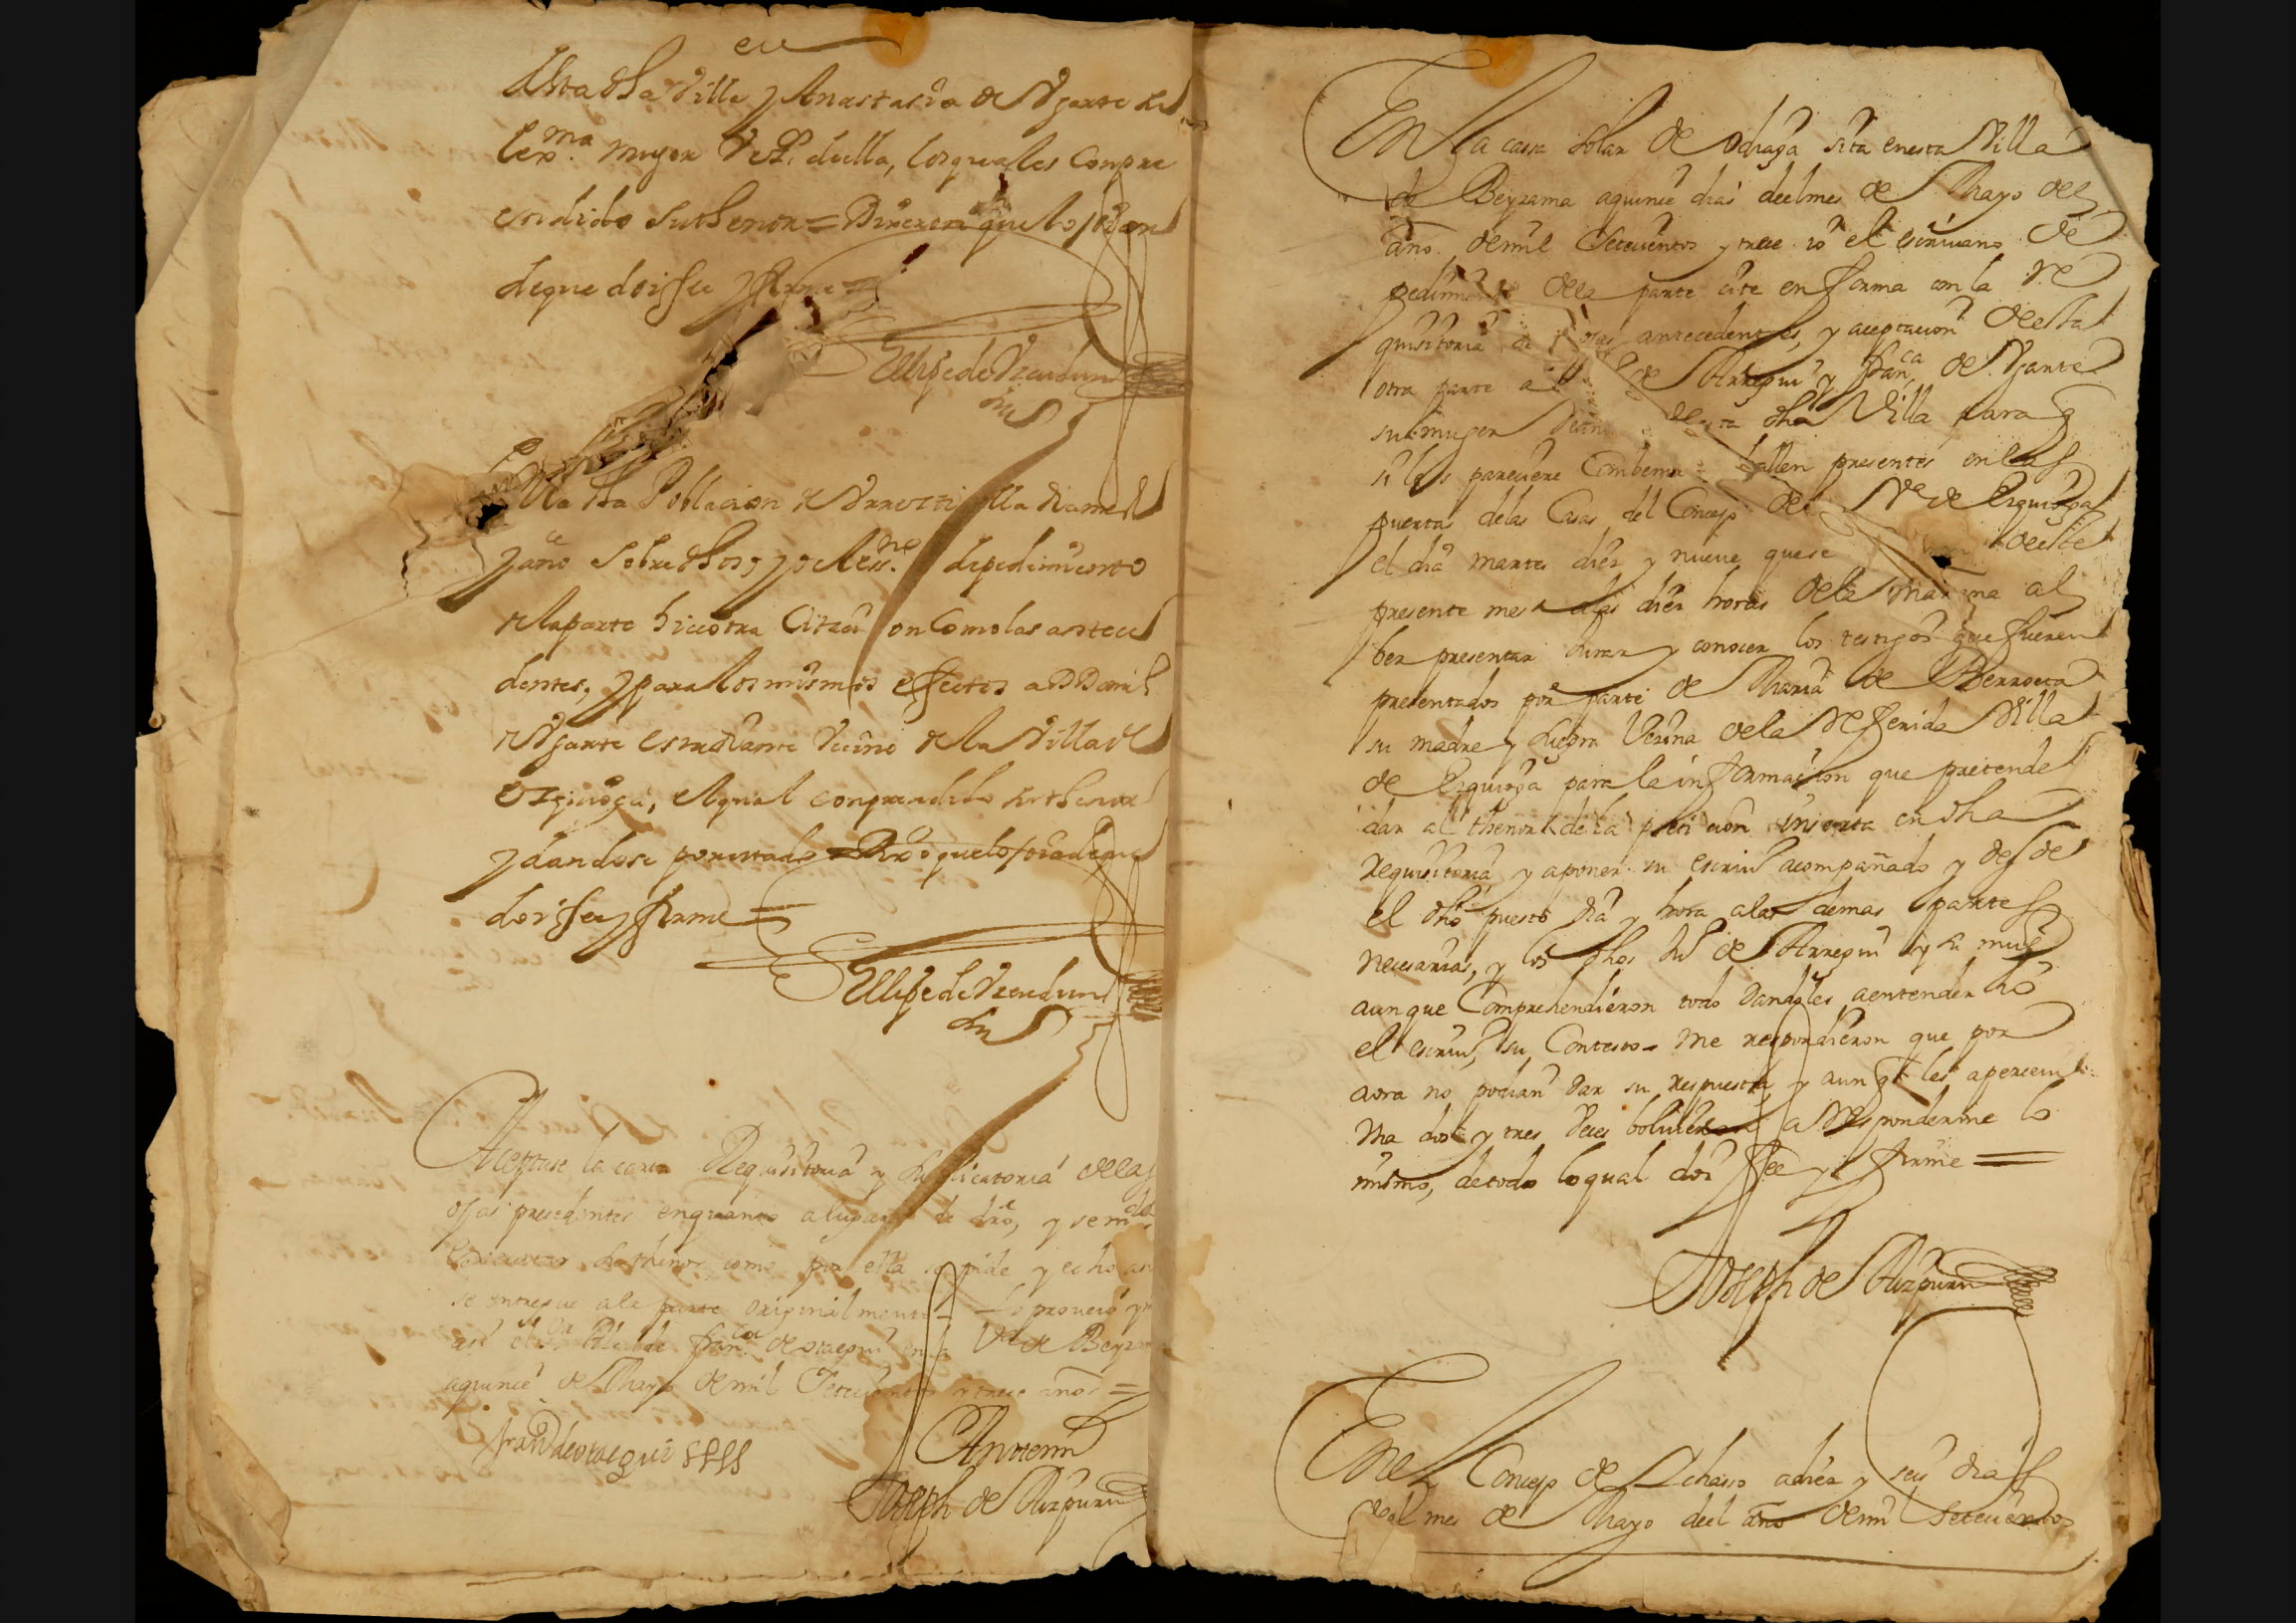 esta dha Villa y Anastasia de Vgarte su
lexma muger Vezª. de ella, los quales Conpre
endido su thenor = Dixeron que lo oian
de que doi ffee y firme =
Phelipe de Vzcudun
En la dha Poblacion de Vrruzti ella dia mes
y año sobre dhos, yo el essno. de pedimiento
de la parte hice otra Citacion Como las antece
dentes, y para los mismos effectos a Dn
de Vgarte estudiante Vecino de la Villa de
Ezquioga, el qual conprendido su thenor
y dandose por citado = Dixo que lo oia de que
doi ffee y firme =
Phelipe de Vzcudun
Aceptase la carta Requisitoria y suplicatoria de las
ojas precedentes en quanto a lugar de dro, y se mda
executar su thenor como por ella se pide y echo assi
se entregue a la parte originalmente = Lo proveió y
assi el sr Alcalde franco de otaegui en la Va de Beyzama
a quince de Mayo de mil Setecientos y trece años =
fran de otaegui
Ante mi
Joseph de Aizpuru
En la cassa solar de Odriaga sita en esta Villa
de Beyzama a quince dias de el mes de Mayo de el
año de mil Setecientos y trece yo el escrivano de
pedimiento de la parte cite en forma con la Re
quisitoria de ojas antecedentes, y aceptacion de esta
otra parte a de Arregui y franca de Vgarte
su muger de esta dha Villa para q
si les pareciere Combenir hallen presentes en las
puertas de las Casas del Concejo de la Va de Ezquioga
el dia martes diez y nueve que se de este
presente mes a las diez horas de la mañana al
ber presentar Jurar y conocer los testigos que fueren
presentados por parte de Maria de Berroeta
su madre y suegra Vezina de la Referida Villa
de Ezquioga para la informacion que pretende
dar al thenor de la peticion inserta en dha
requisitoria y a poner su escrivo acompañado y desde
el dho puesto dia y hora a las demas partes
necesarias, y los dhos de Arregui y su mugr
aunque Comprehendieron todo dandoles a entender yo
el escrivo su Contesto = me respondieron que por
aora no podian dar su respuesta y aunq les aperceui
Vna dos y tres Veces bolvieron a Responderme lo
mismo, de todo lo qual doi ffee y firme =
Joseph de Aizpuru
En el Concejo de a diez y seis dias
de el mes de Mayo de el año de mil Setecientos